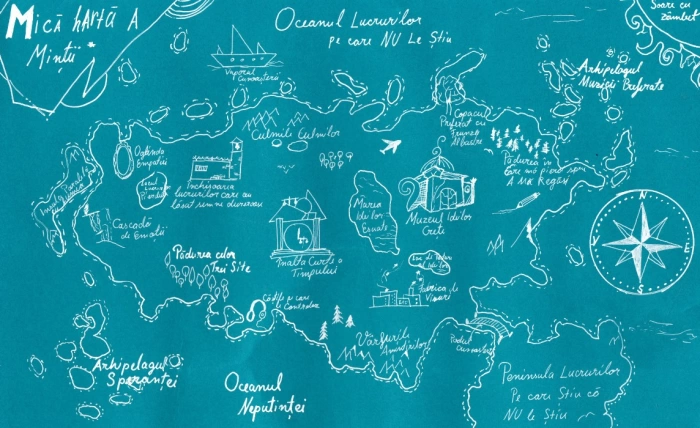 Mică hARtă A
Minții *
Oceanul Lucrurilor
pe care NU Le Știu
Soare cu
zâmbet
Vaporul
Cunoașterii
Arhipelagul
Muzicii Preferate
Culmile Culmilor
Copacul
Preferat cu
Frunze
Albastre
Oglinda
Empatiei
Pădurea în
care mă pierd spre
A MĂ Regăsi
Închisoarea
lucrurilor care au
lăsat semne dureroase
Marea
Ideilor
Eșuate
Muzeul Ideilor
Crețe
Cascada
de Emoții
Pădurea celor
Trei Site
Înalta Curte a
Timpului
Fabrica de
Visări
N
S
Vârfurile
Amintirilor
Podul
Arhipelagul
Speranței
Oceanul
Neputinței
Peninsula Lucrurilor
Pe care Știu că
NU le Știu